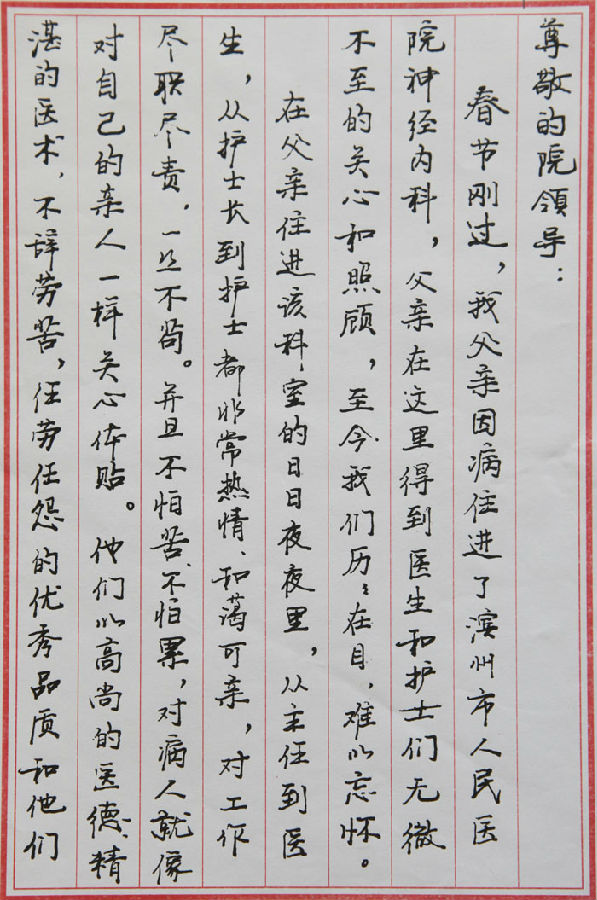 尊敬的院领导：
春节刚过，我父亲因病住进了滨州市人民医
院神经内科，父亲在这里得到医生和护士们无微
不至的关心和照顾，至今我们历：在目，难以忘怀。
在父亲住进该科室的日日夜夜里，从主任到医
生，从护士长到护士都非常热情、和蔼可亲，对工作
尽职尽责，一丝不苟。并且不怕苦、不怕累，对病人就像
对自己的亲人一样关心体贴。他们以高尚的医德、精
湛的医术、不辞劳苦，任劳任怨的优秀品质和他们